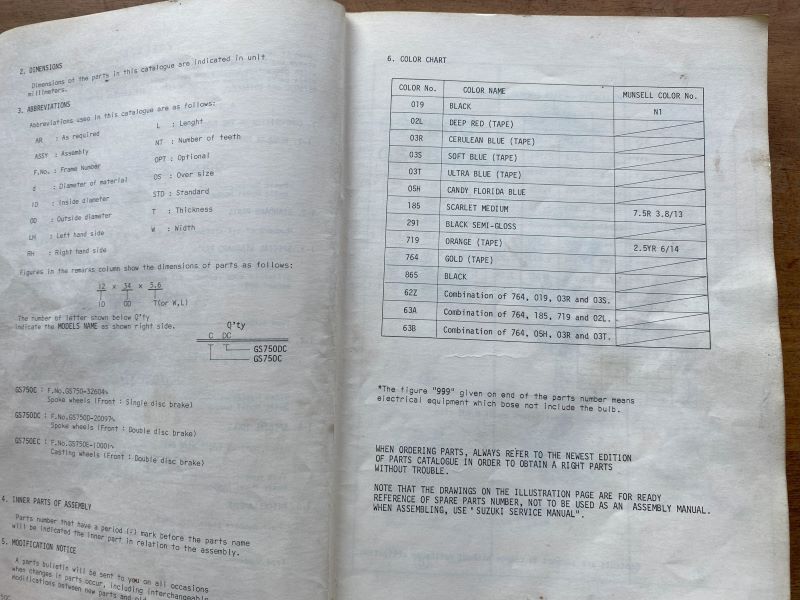 2. DIMENSIONS
Dimensions of the parts in this catalogue are indicated in unit
millimeters.
3. ABBREVIATIONS
Abbreviations used in this catalogue are as follows:
AR : As required
ASSY : Assembly
F.No. : Frame Number
d : Diameter of material
ID : Inside diameter
OD : Outside diameter
LH : Left hand side
RH : Right hand side
L : Lenght
NT : Number of teeth
OPT : Optional
OS : Over size
STD : Standard
T : Thickness
W : Width
Figures in the remarks column show the dimensions of parts as follows:
12 x 34 x 5.6
ID OD T(or W,L)
The number of letter shown below Q'ty
indicate the MODELS NAME as shown right side.
Q'ty
C DC
GS750DC
GS750C
GS750C : F.No.GS750-32604~
Spoke wheels (Front : Single disc brake)
GS750DC : F.No.GS750D-20097~
Spoke wheels (Front : Double disc brake)
GS750EC : F.No.GS750E-10001~
Casting wheels (Front : Double disc brake)
4. INNER PARTS OF ASSEMBLY
Parts number that have a period (.) mark before the parts name
will be indicated the inner part in relation to the assembly.
5. MODIFICATION NOTICE
A parts bulletin will be sent to you on all occasions
when changes in parts occur, including interchangeable
modifications between new parts and old
6. COLOR CHART
COLOR No. COLOR NAME MUNSELL COLOR No.
019 BLACK N1
02L DEEP RED (TAPE)
03R CERULEAN BLUE (TAPE)
03S SOFT BLUE (TAPE)
03T ULTRA BLUE (TAPE)
05H CANDY FLORIDA BLUE
185 SCARLET MEDIUM 7.5R 3.8/13
291 BLACK SEMI-GLOSS
719 ORANGE (TAPE) 2.5YR 6/14
764 GOLD (TAPE)
865 BLACK
62Z Combination of 764, 019, 03R and 03S.
63A Combination of 764, 185, 719 and 02L.
63B Combination of 764, 05H, 03R and 03T.
*The figure "999" given on end of the parts number means
electrical equipment which bose not include the bulb.
WHEN ORDERING PARTS, ALWAYS REFER TO THE NEWEST EDITION
OF PARTS CATALOGUE IN ORDER TO OBTAIN A RIGHT PARTS
WITHOUT TROUBLE.
NOTE THAT THE DRAWINGS ON THE ILLUSTRATION PAGE ARE FOR READY
REFERENCE OF SPARE PARTS NUMBER, NOT TO BE USED AS AN ASSEMBLY MANUAL.
WHEN ASSEMBLING, USE "SUZUKI SERVICE MANUAL".